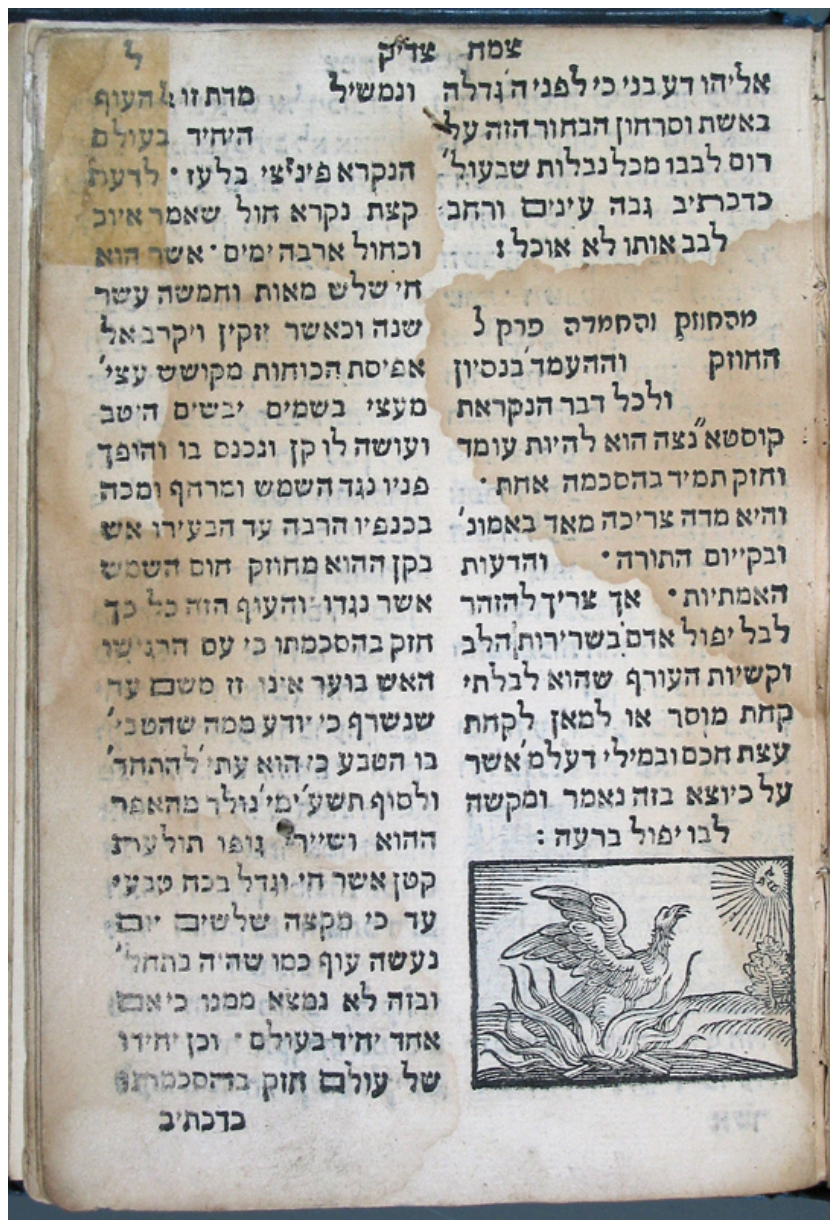 צמח צדיק
ל
אליהו דע בני כי לפני ה' גדלה
באשת וסרחון הבחור הזה על
רום לבבו מכל נבלות שבעול'
כדכתיב גבה עינים ורחב
לבב אותו לא אוכל:
מהחוזק והחמדה פרק ל
החוזק וההעמד' בנסיון
ולכל דבר הנקראת
קוסטא"נצה הוא להיות עומד
וחזק תמיד בהסכמה אחת ·
והיא מדה צריכה מאד באמונ'
ובקייום התורה · והדעות
האמתיות · אך צריך להזהר
לבל יפול אדם בשרירות הלב
וקשיות העורף שהוא לבלתי
קחת מוסר או למאן לקחת
עצת חכם ובמילי דעלמ' אשר
על כיוצא בזה נאמר ומקשה
לבו יפול ברעה:
ונמשיל מדת זו להעוף
היחיד בעולם
הנקרא פינ'יצי בלעז · לדעת
קצת נקרא חול שאמר איוב
וכחול ארבה ימים · אשר הוא
חי שלש מאות וחמשה עשר
שנה וכאשר יזקין ויקרב אל
אפיסת הכוחות מקושש עצי'
מעצי בשמים יבשים היטב
ועושה לו קן ונכנס בו והופך
פניו נגד השמש ומרחף ומכה
בכנפיו הרבה עד הבעירו אש
בקן ההוא מחוזק חום השמש
אשר נגדו · והעוף הזה כל כך
חזק בהסכמתו כי עם הרגישו
האש בוער אינו זז משם עד
שנשרף כי יודע ממה שהטבי'
בו הטבע כי הוא עתי' להתחד'
ולסוף תשע' ימי' נולד מהאפר
ההוא ושייר' גופו תולעת
קטן אשר חי וגדל בכח טבעי
עד כי מקצה שלשים יום
נעשה עוף כמו שהיה בתחל'
ובזה לא נמצא ממנו כי אם
אחד יחיד בעולם · וכן יחידו
של עולם חזק בהסכמתו
כדכתיב